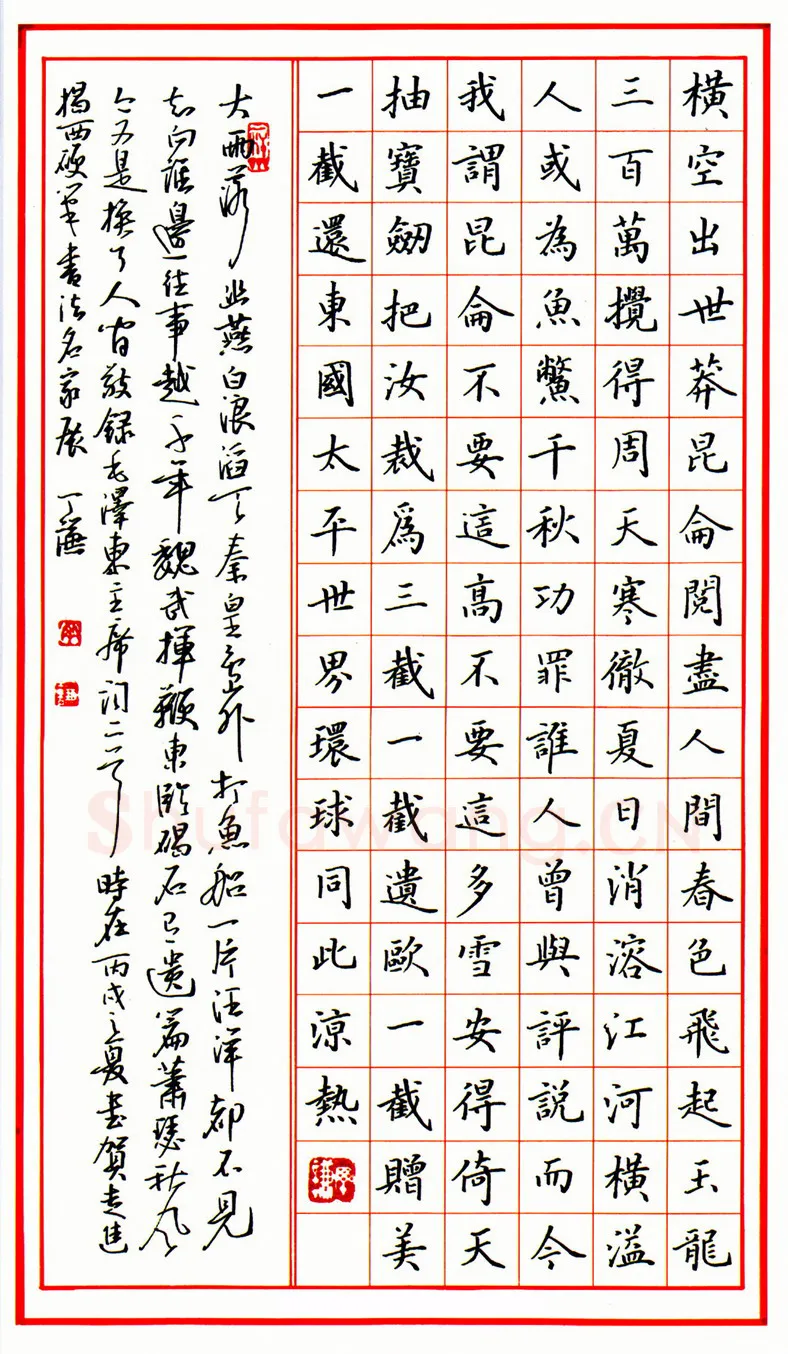 橫空出世莽昆侖閱盡人間春色飛起玉龍
三百萬攪得周天寒徹夏日消溶江河橫溢
人或為魚鱉千秋功罪誰人曾與評說而今
我謂昆侖不要這高不要這多雪安得倚天
抽寶劒把汝裁爲三截一截遺歐一截贈美
一截還東國太平世界環球同此涼熱
大雨落幽燕白浪滔天秦皇島外打魚船一片汪洋都不見
知向誰邊往事越千年魏武揮鞭東臨碣石有遺篇蕭瑟秋風
今又是換了人间敬錄毛澤東主席詞二首時在丙戌之夏書賀走進
揭西硬筆書法名家展 丁謙
Shufawang.CN